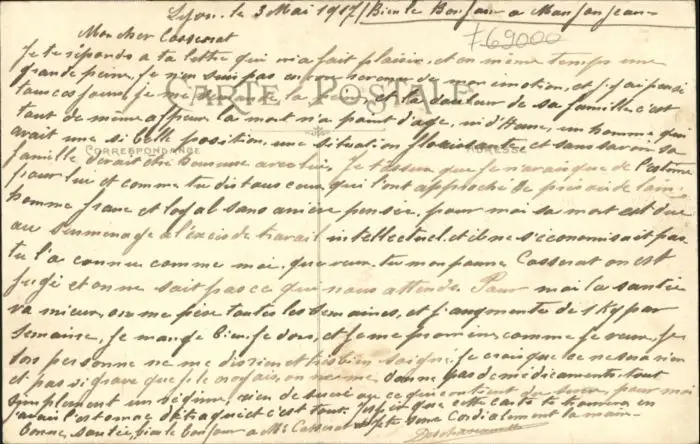 Lyon, le 3 Mai 1917 / Bien le Bonjour a Mr Jonjean
769000
Mon cher Casserat
Je te réponds a ta lettre qui m'a fait plaisir, et en même temps une
grande peine, je n'en suis pas encore de mon émotion, et j'y ai pensé
tous ces jours, je me la et la douleur de sa famille, c'est
CARTE POSTALE
tout de même affreux la mort n'a point d'age, ni d'Heure, un homme qui
avait une si belle position, une situation florissante, et sans savoir sa
CORRESPONDANCE
ADRESSE
famille devait être heureuse avec lui, Je t'assure que je n'avais que de l'estime
pour lui et comme tu dis tous ceux qui l'ont approché de près
homme franc et loyal sans arrière pensée, pour moi sa mort est due
au surmenage a l'excès de travail intellectuel, et il ne s'économisait pas
tu l'a connu comme moi, que veux-tu mon pauvre Casserat on est
Jugé et on ne sait pas ce que nous attends. Pour moi la santée
va mieux, on me pèse toutes les semaines, et j'augmente de 1 Kg par
semaine, Je mange bien, je dors, et je me promène, comme je veux, Je
dois personne ne me dis rien et très bien soigné, je crois que ce ne sera rien
et pas si grave que je le croyais, on ne me donne pas de médicaments, tout
simplement un régime, rien de sucré ou ce qui contient du sucre, pour moi
j'avais l'estomac détraqué et c'est tout. J'espère que cette carte te trouvera en
bonne santée, bien le bonjour a Me Casserat et je te serre Cordialement la main